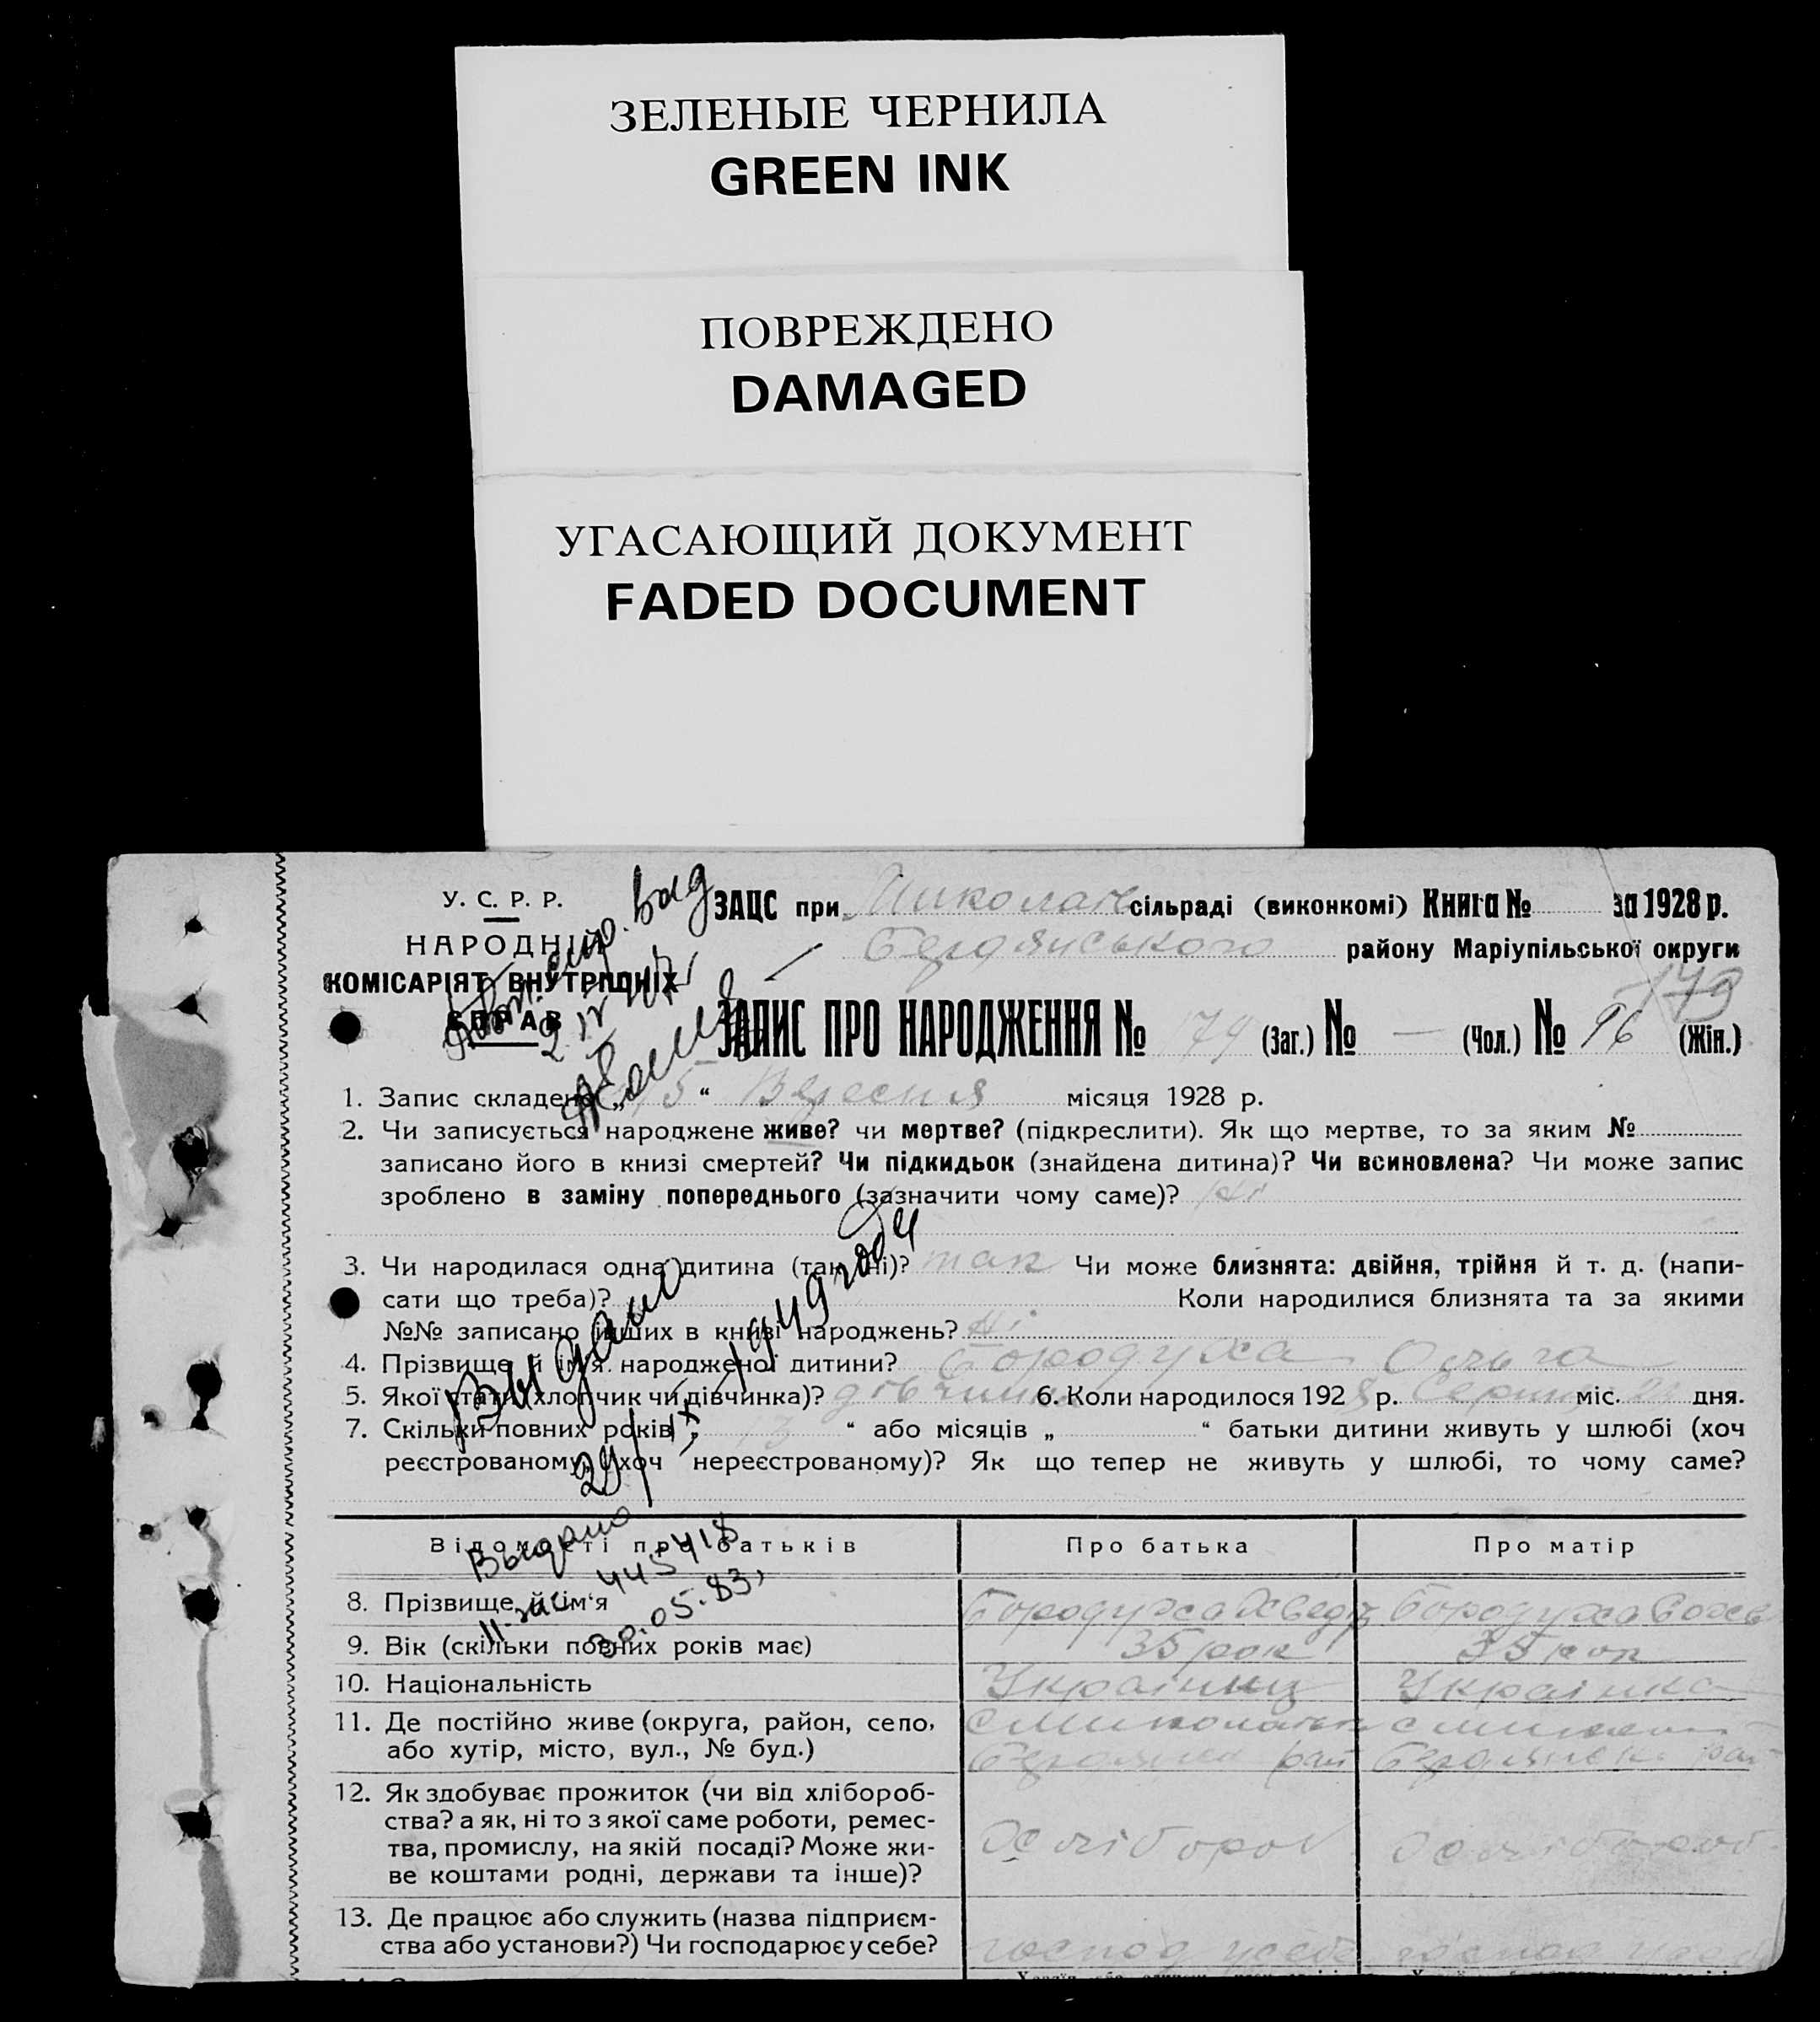 ЗЕЛЕНЫЕ ЧЕРНИЛА
GREEN INK
ПОВРЕЖДЕНО
DAMAGED
УГАСАЮЩИЙ ДОКУМЕНТ
FADED DOCUMENT
У. С. Р. Р.
НАРОДНІЙ
КОМІСАРІЯТ ВНУТРІШНІХ
СПРАВ
ЗАЦС при сільраді (виконкомі) Книга № за 1928 р.
Бердянського району Маріупільської округи
179
ЗАПИС ПРО НАРОДЖЕННЯ № 179 (Заг.) № — (Чол.) № 96 (Жін.)
1. Запис складено „15“ Вересня місяця 1928 р.
2. Чи записується народжене живе? чи мертве? (підкреслити). Як що мертве, то за яким №
записано його в книзі смертей? Чи підкидьок (знайдена дитина)? Чи всиновлена? Чи може запис
зроблено в заміну попереднього (зазначити чому саме)? ні
3. Чи народилася одна дитина (так, ні)? так Чи може близнята: двійня, трійня й т. д. (напи-
сати що треба)? Коли народилися близнята та за якими
№№ записано інших в книзі народжень? ні
4. Прізвище й ім'я народженої дитини? Бородуха Ольга
5. Якої стати (хлопчик чи дівчинка)? дівчинка 6. Коли народилося 1928 р. Серпня міс. дня.
7. Скільки повних років „ 13 “ або місяців „ “ батьки дитини живуть у шлюбі (хоч
реєстрованому, хоч нереєстрованому)? Як що тепер не живуть у шлюбі, то чому саме?
Выдано
29/IX 1949 году
Выдано
445418
30.05.83
Відомості про батьків Про батька Про матір
8. Прізвище й ім'я Бородуха Бородуха
9. Вік (скільки повних років має) 35 рок 35 рок
10. Національність Українец Українка
11. Де постійно живе (округа, район, село,
або хутір, місто, вул., № буд.)
12. Як здобуває прожиток (чи від хлібороб-
ства? а як, ні то з якої саме роботи, ремес-
тва, промислу, на якій посаді? Може жи-
ве коштами родні, держави та інше)?
Хлібороб Хлібороб
13. Де працює або служить (назва підприєм-
ства або установи?) Чи господарює у себе?
господ у себе господ у себе